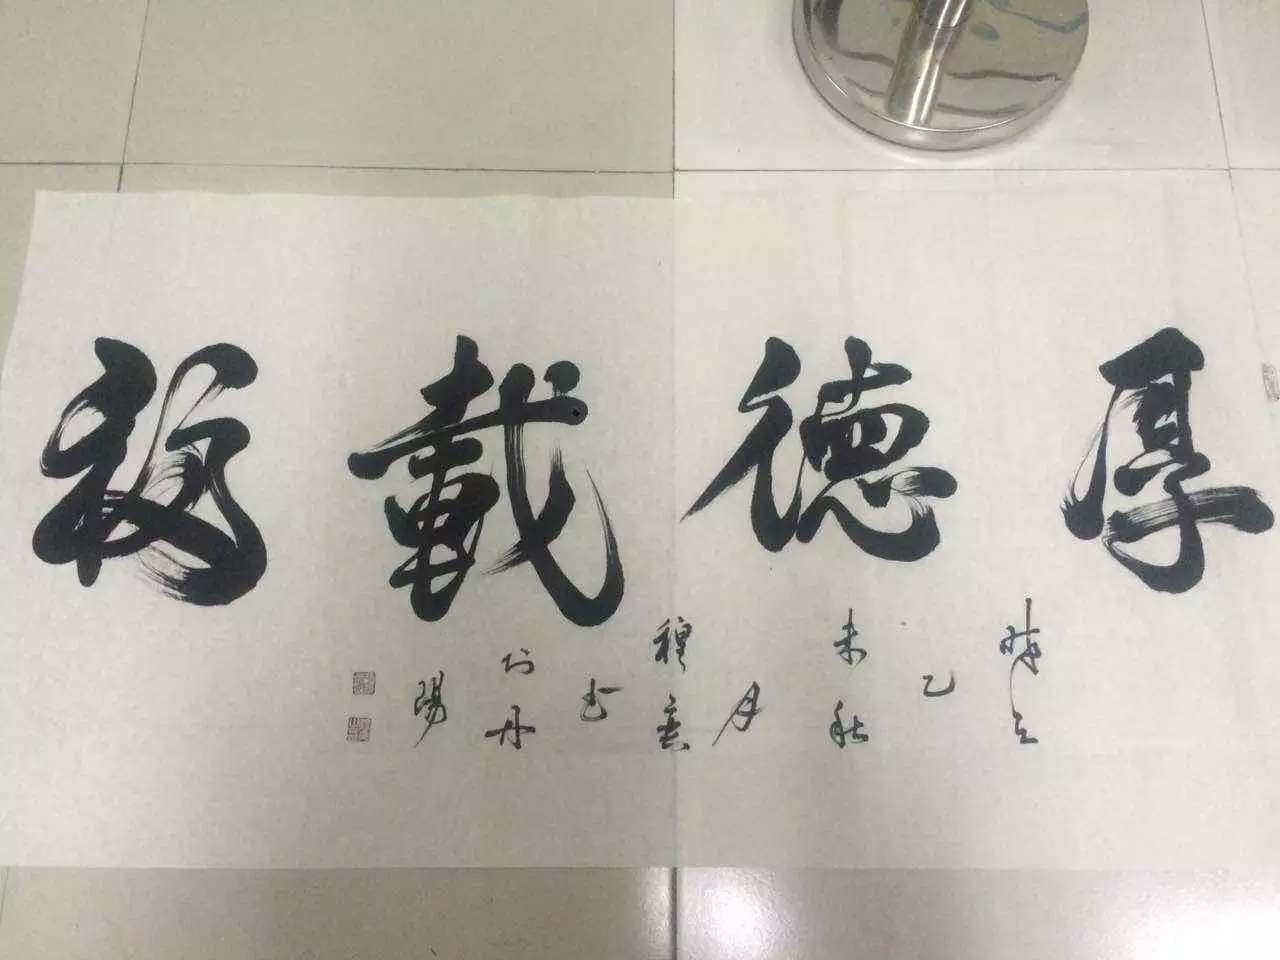 厚德載福
時在
乙
未秋
月
穆
书
於丹
陽